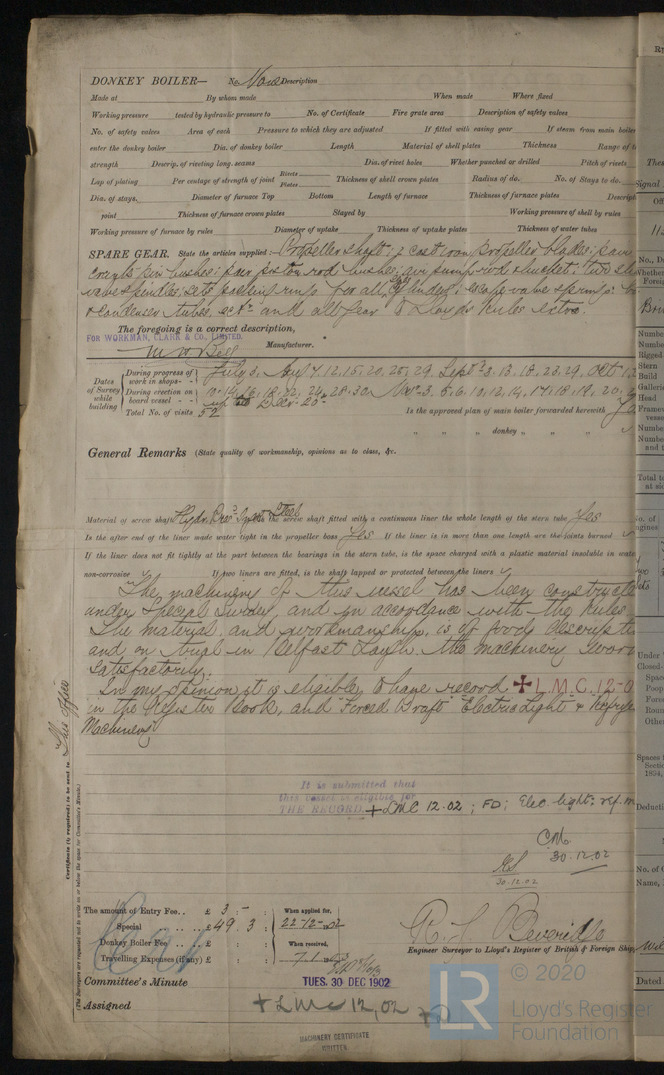 DONKEY BOILER— No. None Description
Made at By whom made When made Where fixed
Working pressure tested by hydraulic pressure to No. of Certificate Fire grate area Description of safety valves
No. of safety valves Area of each Pressure to which they are adjusted If fitted with easing gear If steam from main boiler
enter the donkey boiler Dia. of donkey boiler Length Material of shell plates Thickness Range of
strength Descrip. of riveting long. seams Dia. of rivet holes Whether punched or drilled Pitch of rivets
Lap of plating Per centage of strength of joint Rivets Plates Thickness of shell crown plates Radius of do. No. of Stays to do.
Dia. of stays. Diameter of furnace Top Bottom Length of furnace Thickness of furnace plates Descript
joint Thickness of furnace crown plates Stayed by Working pressure of shell by rules
Working pressure of furnace by rules Diameter of uptake Thickness of uptake plates Thickness of water tubes
SPARE GEAR. State the articles supplied:— Propeller shaft; 2 cast iron propeller blades; pair
crank pin bushes; pair piston rod bushes; air pump rod & bucket; two
valve spindles; sets packing rings for all cylinders; escape valve springs;
& Condenser tubes, and all gear Lloyds Rules extra.
The foregoing is a correct description,
FOR WORKMAN, CLARK & CO., LIMITED.
Manufacturer.
Dates of Survey while building
During progress of work in shops - - July 3, Aug 7. 12. 15. 20. 25. 29. Sept 3. 13. 18. 23. 29. Oct
During erection on board vessel - - 10. 14. 16. 18. 22. 24. 28. 30. Nov. 3. 5. 6. 10. 12. 14. 17. 18. 19. 20.
up to Decr. 20th
Total No. of visits 52 Is the approved plan of main boiler forwarded herewith
" " " donkey " " "
General Remarks (State quality of workmanship, opinions as to class, &c.
Material of screw shaft Is the screw shaft fitted with a continuous liner the whole length of the stern tube Yes
Is the after end of the liner made water tight in the propeller boss Yes If the liner is in more than one length are the joints burned
If the liner does not fit tightly at the part between the bearings in the stern tube, is the space charged with a plastic material insoluble in water
non-corrosive If two liners are fitted, is the shaft lapped or protected between the liners
The machinery of this vessel has been constructed
under Special Survey, and in accordance with the Rules.
The material, and workmanship, is of good descripti
and on trial in Belfast Lough, the machinery
satisfactorily.
In my opinion it is eligible to have record + L.M.C. 12-0
in the Register Book, and Forced Draft Electric Light &
Machinery
It is submitted that
this vessel is eligible for
THE RECORD. + LMC 12.02 ; FD; Elec light: ref. m
CM
30.12.02
30.12.02
The amount of Entry Fee. . £ 3 : - When applied for,
Special . . . . £ 49 : 3 : 22-12-1902
Donkey Boiler Fee . . £ When received,
Travelling Expenses (if any) £ 7.1.1903
Engineer Surveyor to Lloyd's Register of British & Foreign Ship
Committee's Minute TUES. 30 DEC 1902
Assigned + LMC 12,02 FD
MACHINERY CERTIFICATE
WRITTEN.
Certificate (if required) to be sent to This office
(The Surveyors are requested not to write on or below the space for Committee's Minute.)
LR
© 2020
Lloyd's Register
Foundation